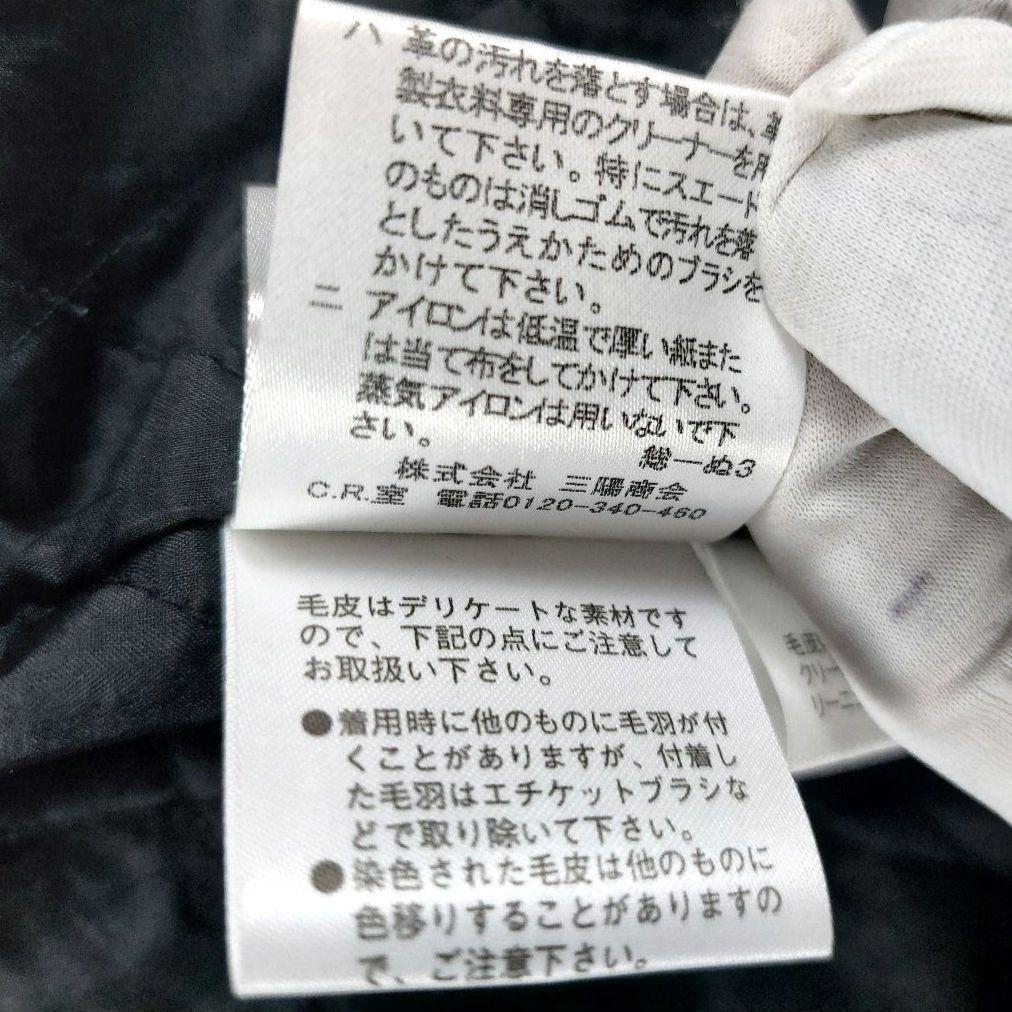 ハ 革の汚れを落とす場合は、革
製衣料専用のクリーナーを用
いて下さい。特にスエード
のものは消しゴムで汚れを落
としたうえかためのブラシを
かけて下さい。
ニ アイロンは低温で厚い紙また
は当て布をしてかけて下さい。
蒸気アイロンは用いないで下
さい。
総一ぬ3
株式会社 三陽商会
C.R.室 電話0120-340-460
毛皮はデリケートな素材です
ので、下記の点にご注意して
お取扱い下さい。
●着用時に他のものに毛羽が付
くことがありますが、付着し
た毛羽はエチケットブラシな
どで取り除いて下さい。
●染色された毛皮は他のものに
色移りすることがありますの
で、ご注意下さい。
毛皮
クリー
リーニ